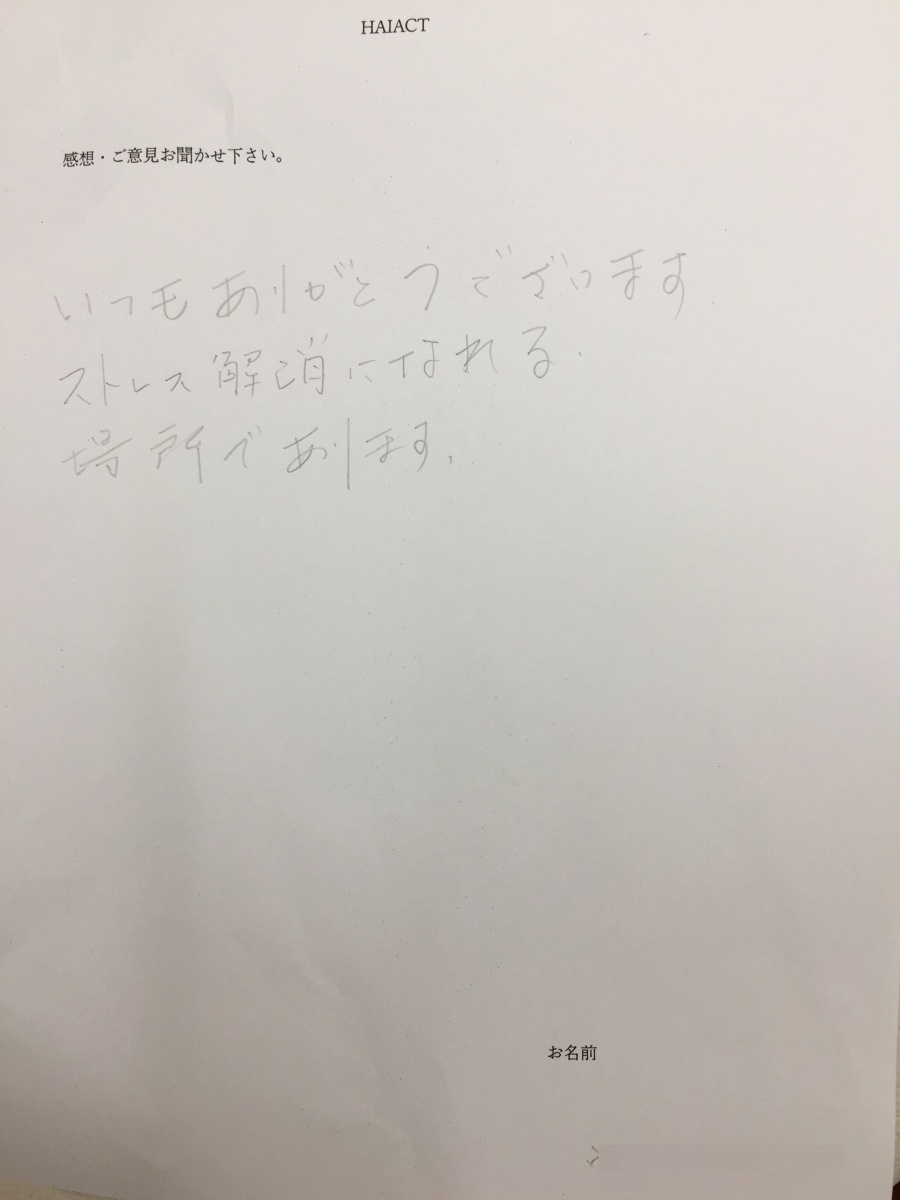 HAIACT
感想・ご意見お聞かせ下さい。
いつもありがとうございます.
ストレス解消になれる.
場所であります.
お名前